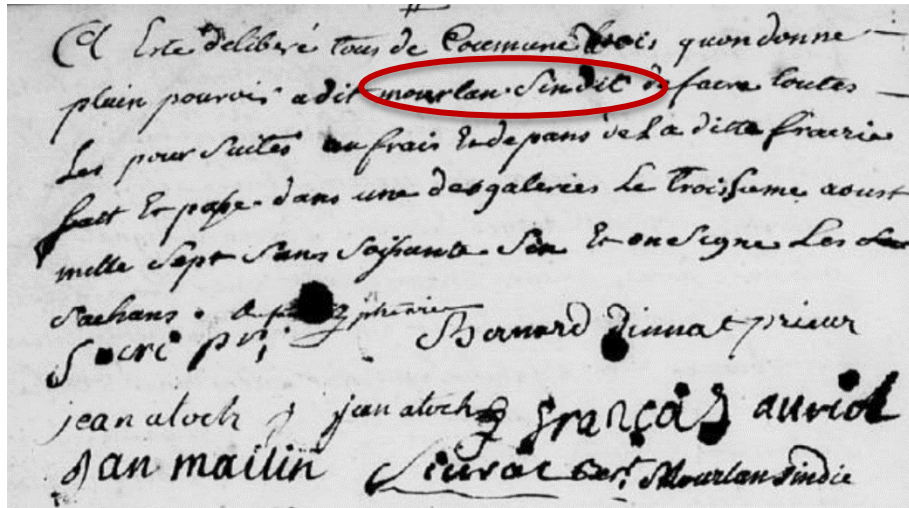 Este deliberé tous de Coumune vois quon donne
plain pourvoir a dit mourlan Sindit de faire toutes
Les pour Suites au frais Et depans de La ditte frairie
fait Et passe dans une des galeries Le Troisieme aoust
mille Sept Sans Soissante Six Et on Signe Les
Sachans
Bernard prieur
jean aloch jean aloch françois auriol
Jan mailin Sieurac Mourlan Sindic